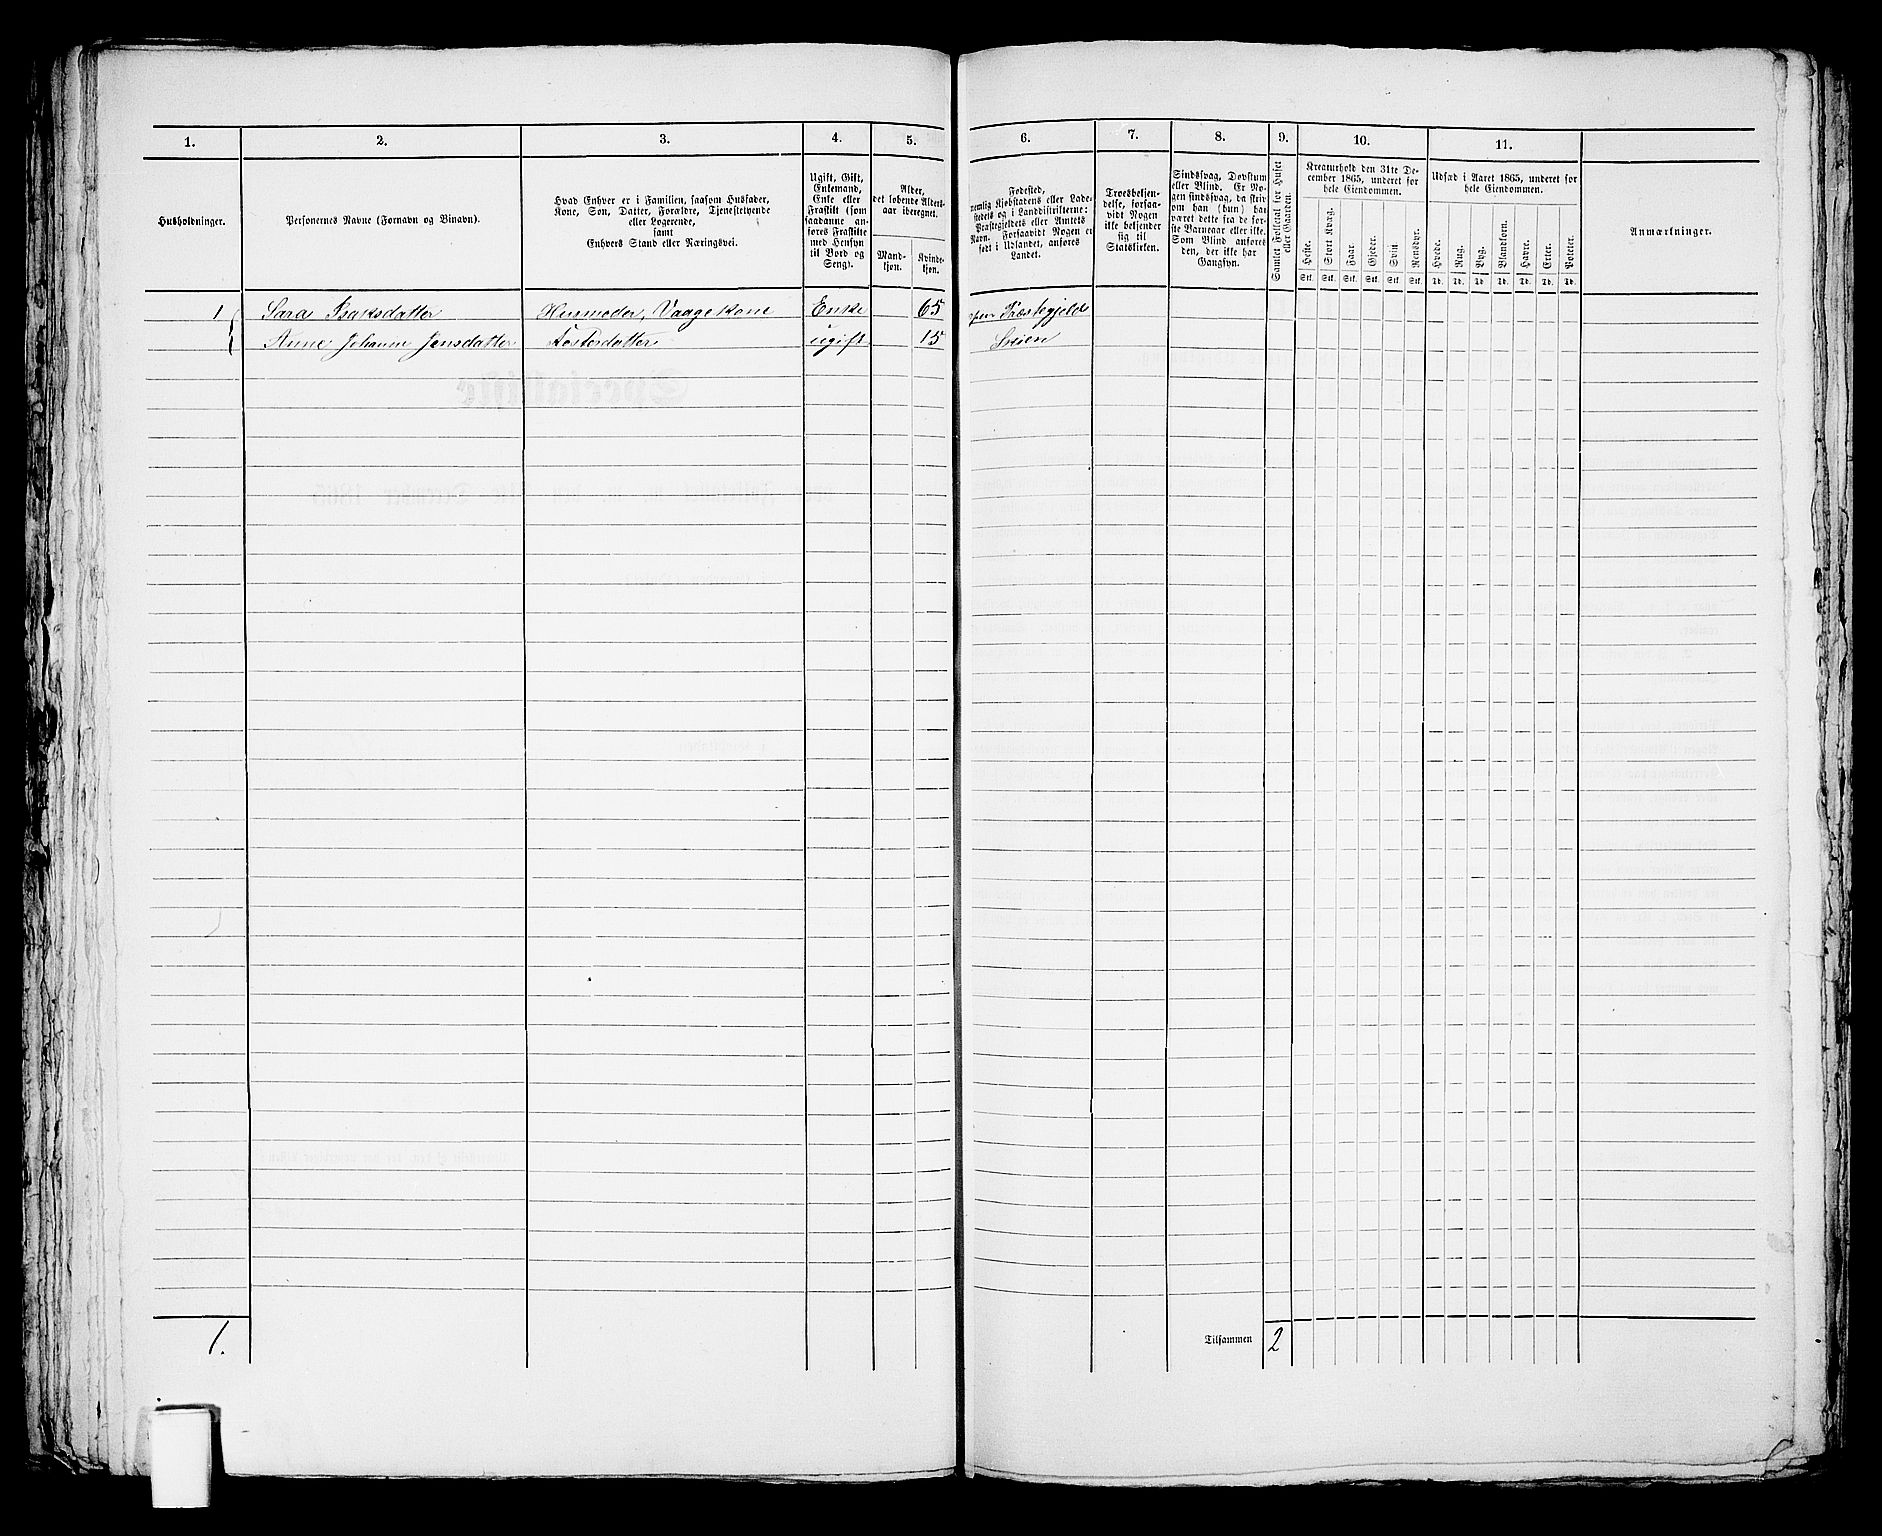 1. 2. 3. 4. 5. 6. 7. 8. 9. 10. 11.
Husholdninger.
Personernes Navne (Fornavn og Binavn).
Hvad Enhver er i Familien, saasom Husfader,
Kone, Søn, Datter, Forældre, Tjenestetyende
eller Logerende,
samt
Enhvers Stand eller Næringsvei.
Ugift, Gift,
Enkemand,
Enke eller
Fraskilt (som
saadanne an-
føres Fraskilte
med Hensyn
til Bord og
Seng).
Alder,
det løbende Alders-
aar iberegnet.
Mand-
kjøn.
Kvinde-
kjøn.
Fødested,
nemlig Kjøbstadens eller Lade-
stedets og i Landdistrikterne:
Præstegjeldets eller Amtets
Navn. Forsaavidt Nogen er
født i Udlandet, anføres
Landet.
Troesbekjen-
delse, forsaa-
vidt Nogen
ikke bekjender
sig til
Statskirken.
Sindssvag, Døvstum
eller Blind. Er No-
gen sindssvag, da skriv
om han (hun) har
været dette fra de før-
ste Barneaar eller ikke.
Som Blind anføres
den, der ikke har
Gangsyn.
Samlet Folketal for Huset
eller Gaarden.
Kreaturhold den 31te De-
cember 1865, underet for
hele Eiendommen.
Heste. Stort Kvæg. Faar. Gjeder. Sviin. Rensdyr.
Stk. Stk. Stk. Stk. Stk. Stk.
Udsæd i Aaret 1865, underet for
hele Eiendommen.
Hvede. Rug. Byg. Blandkorn. Havre. Erter. Poteter.
Td. Td. Td. Td. Td. Td. Td.
Anmærkninger.
1 Sara Isaksdatter Husmoder, Vaagekone Enke 65 Præstegjeld
Anne Johanne Jensdatter Fosterdatter ugift 15
1.
Tilsammen 2